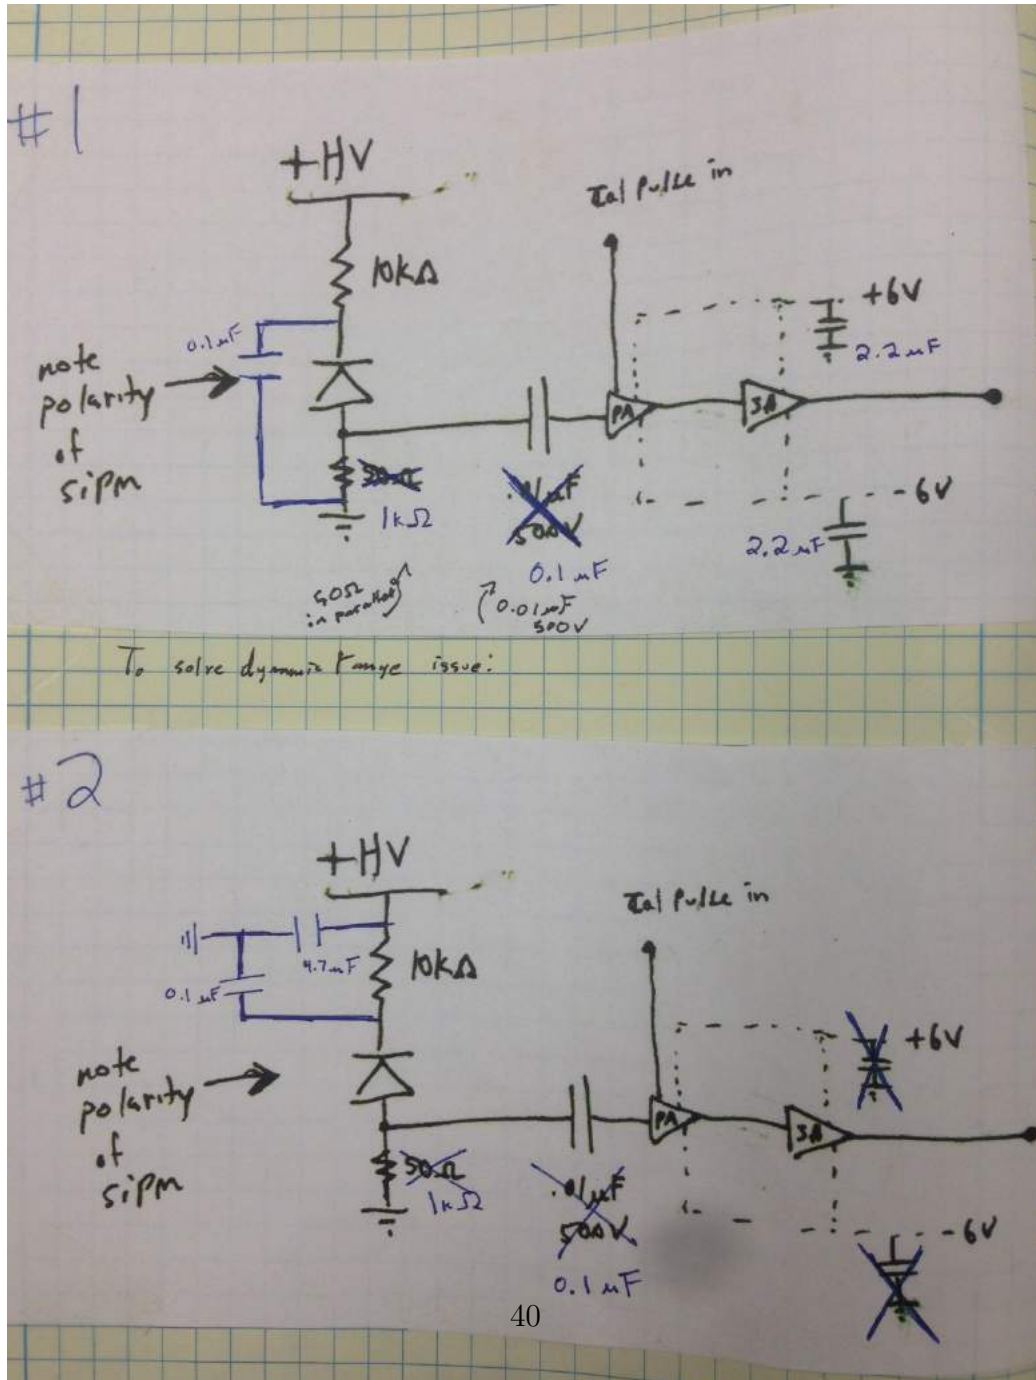 #1
+HV
Cal Pulse in
10kΩ
+6V
0.1 uF
2.2 uF
note
polarity
of
sipm
PA
SA
50Ω
1kΩ
.01uF
500V
-6V
2.2 uF
0.1 uF
50Ω
in parallel
0.01uF
500V
To solve dynamic range issue:
#2
+HV
Cal Pulse in
4.7uF
10kΩ
0.1 uF
+6V
note
polarity
of
sipm
PA
SA
50Ω
1kΩ
.01uF
500V
-6V
0.1 uF
40